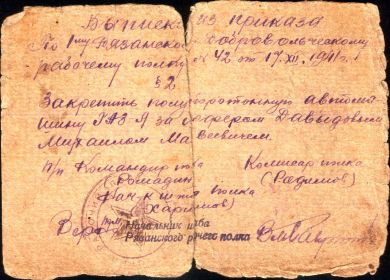 Выписка из приказа
По 1му Рязанскому добровольческому
рабочему полку № 42 от 17.XII.1941 г.
§ 2
Закрепить полуторотонную автома
шину ГАЗ-А за шофером Давыдовым
Михаилом Матвеевичем.
п/п Командир полка Комисар полка
(Ромадин) (Радимов)
Нач-к штаба полка
(Харитонов)
Верно: Начальник штаба
Рязанского рабочего полка